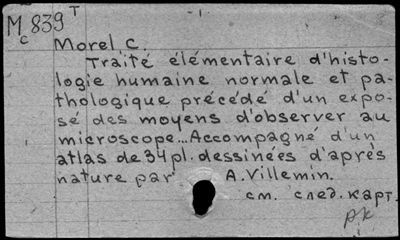 M 839 T
c
Morel C.
Traité élémentaire d'histo-
logie humaine normale et pa-
thologique précédé d'un expo-
sé des moyens d'observer au
microscope... Accompagné d'un
atlas de 34 pl. dessinées d'après
nature par A. Villemin.
см. след. карт.
рк